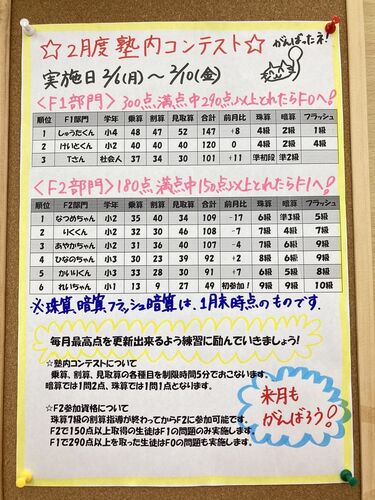 ☆2月度 塾内コンテスト☆
がんばったネ!
実施日 2/6(月)〜2/10(金)
〈F1部門〉300点満点中290点以上とれたらF0へ!
順位 F1部門 学年 乗算 割算 見取算 合計 前月比 珠算 暗算 フラッシュ
1 しゅうたくん 小4 48 47 52 147 +8 4級 2級 1級
2 けいとくん 小2 40 34 30 120 0 4級 2級 4級
3 Tさん 社会人 37 34 30 101 +11 準初段 準2級
〈F2部門〉180点満点中150点以上とれたらF1へ!
順位 F2部門 学年 乗算 割算 見取算 合計 前月比 珠算 暗算 フラッシュ
1 なつめちゃん 小2 35 40 34 109 −17 6級 準3級 5級
2 りくくん 小2 32 30 46 108 −7 7級 4級 7級
3 あやかちゃん 小2 31 36 40 107 −4 7級 6級 9級
4 ひなのちゃん 小2 30 23 39 92 +3 7級 6級 9級
5 かいりくん 小3 33 28 30 91 +1 6級 5級 8級
6 れいちゃん 小1 13 9 27 49 初参加! 9級 6級 10級
※珠算、暗算、フラッシュ暗算は、1月末時点のものです.
毎月最高点を更新出来るよう練習に励んでいきましょう!
☆塾内コンテストについて
乗算、割算、見取算の各種目を制限時間5分でおこないます。
暗算では1問2点、珠算では1問1点となります。
☆F2参加資格について
珠算7級の割算指導が終わってからF2に参加可能です。
F2で150点以上取得の生徒はF1の問題のみ実施します。
F1で290点以上を取った生徒はF0の問題も実施します。
来月も
がんばろう!